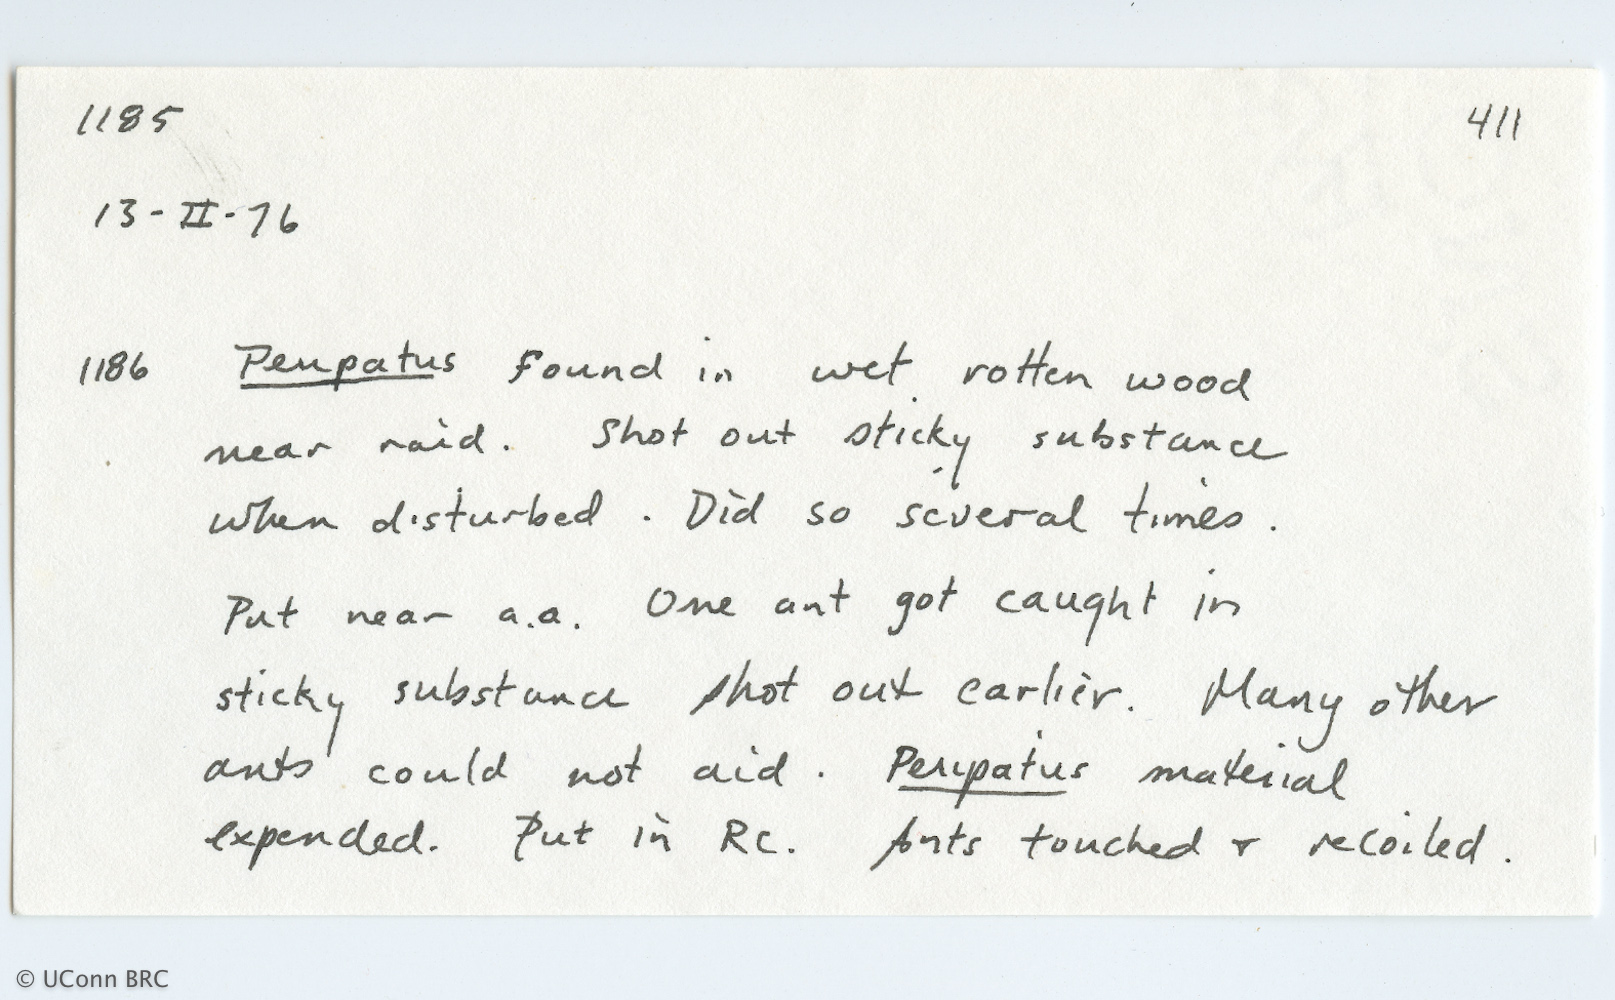 1185 411
13-II-76
1186 Peripatus found in wet rotten wood
near raid. Shot out sticky substance
when disturbed. Did so several times.
Put near a.a. One ant got caught in
sticky substance shot out earlier. Many other
ants could not aid. Peripatus material
expended. Put in RC. Ants touched + recoiled.
© UConn BRC